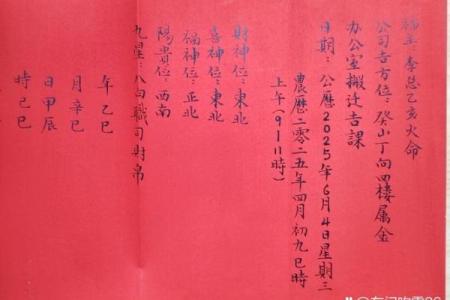 福主：李总乙亥火命
公司吉方位：癸山丁向四楼属金
办公室搬迁吉課
日期：公曆2025年6月4日星期三
農曆二零二五年四月初九巳時
上午（9-11時）
財神位：東北
喜神位：東北
福神位：正北
陽貴位：西南
九星：八白職司財帛
年乙巳
月辛巳
日甲辰
時己巳